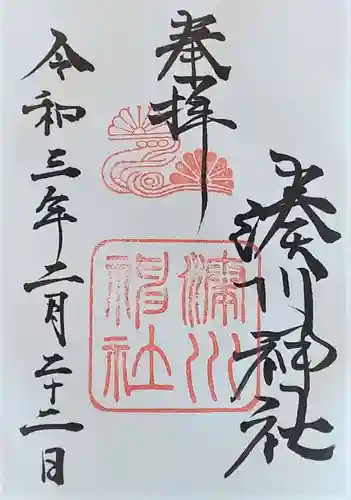 奉拝
湊川神社
湊川神社
令和三年二月二十二日